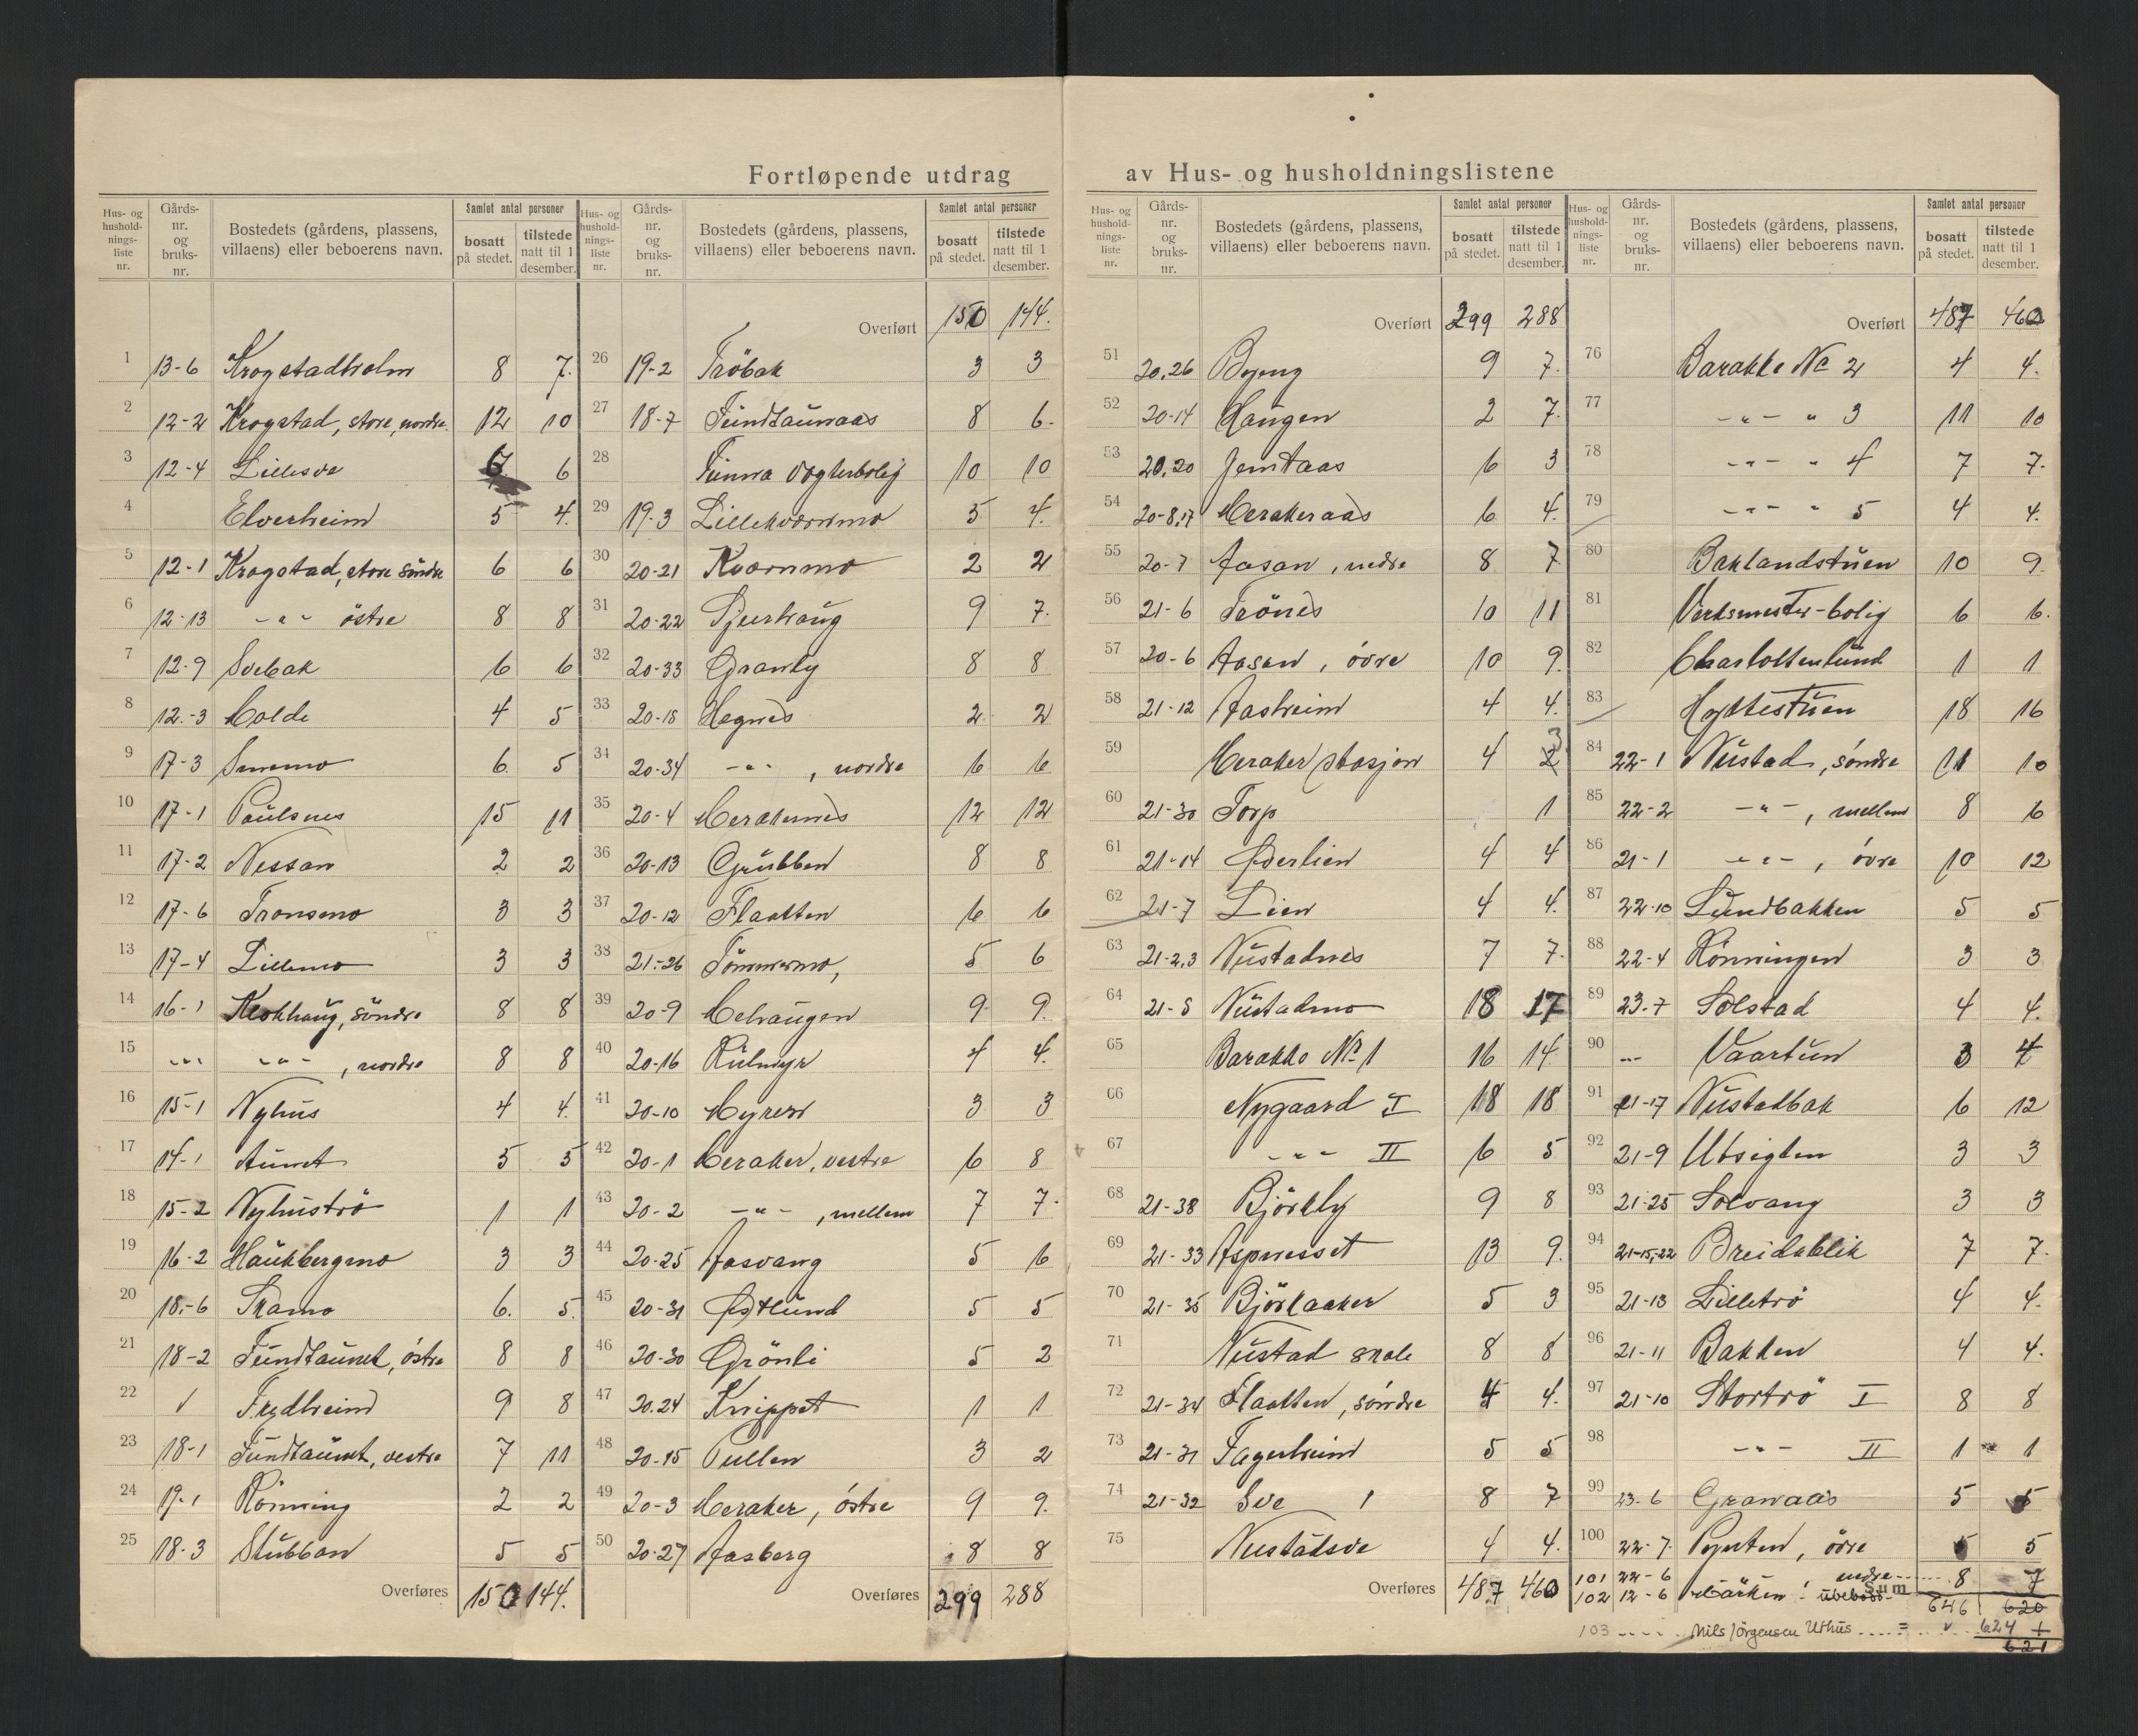 Fortløpende utdrag av Hus- og husholdningslistene
Hus- og hushold-nings-liste nr. Gårds-nr. og bruks-nr. Bostedets (gårdens, plassens, villaens) eller beboerens navn. Samlet antal personer bosatt på stedet. tilstede natt til 1 desember.
1 13-6 Krogstadholm 8 7.
2 12-2 Krogstad, store, nordre 12 10
3 12-4 Lillesve 6
4 Elverheim 5 4.
5 12-1 Krogstad, store söndre 6 6
6 12-13 -"- östre 8 8
7 12-9 Svebak 6 6
8 12-3 Molde 4 5
9 17-3 6. 5
10 17-1 Paulsnes 15 11
11 17-2 Nessan 2 2
12 17-6 Tronsmo 3 3
13 17-4 Lillemo 3 3
14 16-1 Klokhaug, söndre 8 8
15 -"- -"- , nordre 8 8
16 15-1 Nyhus 4 4.
17 14-1 Aunet 5 5
18 15-2 Nyhuströ 1 1
19 16-2 Haukbergmo 3 3
20 18-6 Skamo 6. 5.
21 18-2 Fundtaunet, östre 8 8
22 Frydheim 9 8
23 18-1 Fundtaunet, vestre 7 11
24 19-1 Rönning 2 2
25 18-3 Stubban 5 5
Overføres 150 144.
Hus- og hushold-nings-liste nr. Gårds-nr. og bruks-nr. Bostedets (gårdens, plassens, villaens) eller beboerens navn. Samlet antal personer bosatt på stedet. tilstede natt til 1 desember.
Overført 150 144.
26 19-2 Fröbak 3 3
27 18-7 Fundtaunaas 8 6.
28 Funna Vogterbolig 10 10
29 19-3 Lillekvernmo 5 4.
30 20-21 Kvernmo 2 2
31 20-22 Stjerhaug 9 7.
32 20-33 Granby 8 8
33 20-18 Hegnes 2 2
34 20-34 -"- , nordre 6 6
35 20-4 Merakernes 12 12
36 20-13 Grubben 8 8
37 20-12 Flaatten 6 6
38 21-26 Tömmermo, 5 6
39 20-9 Mehaugen 9 9.
40 20-16 Rulmyr 4 4.
41 20-10 Myren 3 3
42 20-1 Meraker, vestre 6 8
43 20-2 -"- , mellem 7 7.
44 20-25 Aasvang 5 6
45 20-31 Østlund 5 5
46 20-30 Grönli 5 2
47 20.24 Knippet 1 1
48 20-15 Pullen 3 2
49 20-3 Meraker, östre 9 9.
50 20-27 Aasberg 8 8
Overføres 299 288
Hus- og hushold-nings-liste nr. Gårds-nr. og bruks-nr. Bostedets (gårdens, plassens, villaens) eller beboerens navn. Samlet antal personer bosatt på stedet. tilstede natt til 1 desember.
Overført 299 288
51 20.26 9 7.
52 20-14 Haugen 2 7.
53 20.20 Jemtaas 6 3
54 20-8,17 Merakeraas 6 4.
55 20-7 Aasan, nedre 8 7
56 21-6 Trönes 10 11
57 20-6 Aasan, övre 10 9.
58 21-12 Aasheim 4 4.
59 Meraker stasjon 4 3
60 21-30 Torp 1
61 21-14 Øverlien 4 4
62 21-7 Lien 4 4.
63 21-2,3 Nustadnes 7 7.
64 21-5 Nustadmo 18 17
65 Barakke No 1 16 14.
66 Nygaard I 18 18
67 -"- II 6 5
68 21-38 Björkly 9 8
69 21-33 Aspnesset 13 9.
70 21-35 Björkaaker 5 3
71 Nustad skole 8 8
72 21-34 Flaatten, söndre 4 4.
73 21-31 Fagerheim 5 5
74 21-32 Sve 1 8 7
75 Nustadsve 4 4.
Overføres 487 460
Hus- og hushold-nings-liste nr. Gårds-nr. og bruks-nr. Bostedets (gårdens, plassens, villaens) eller beboerens navn. Samlet antal personer bosatt på stedet. tilstede natt til 1 desember.
Overført 487 460
76 Barakke No 2 4 4.
77 -"- " 3 11 10
78 -"- " 4 7 7.
79 -"- " 5 4 4.
80 Baklandstuen 10 9.
81 Verksmester-bolig 6 6.
82 Charlottenlund 1 1
83 Hyttestuen 18 16
84 22-1 Nustad, söndre 11 10
85 22-2 -"- , mellem 8 6
86 21-1 -"- , övre 10 12
87 22-10 Lundbakken 5 5
88 22-4 Rönningen 3 3
89 23-7 Solstad 4 4.
90 -"- Vaartun 3 4
91 21-17 Nustadbak 6 12
92 21-9 Utsigten 3 3
93 21-25 Solvang 3 3
94 21-15,22 Breidablik 7 7.
95 21-13 Lilletrö 4 4.
96 21-11 Bakken 4 4.
97 21-10 Stortrö I 8 8
98 -"- II 1 1
99 23-6 Granaas 5 5
100 22-7. övre 5
101 22-6 nedre 8 7
102 12-6 ubebodd Sum 646 620
103 Nils Jörgensen Uthus = 624
621